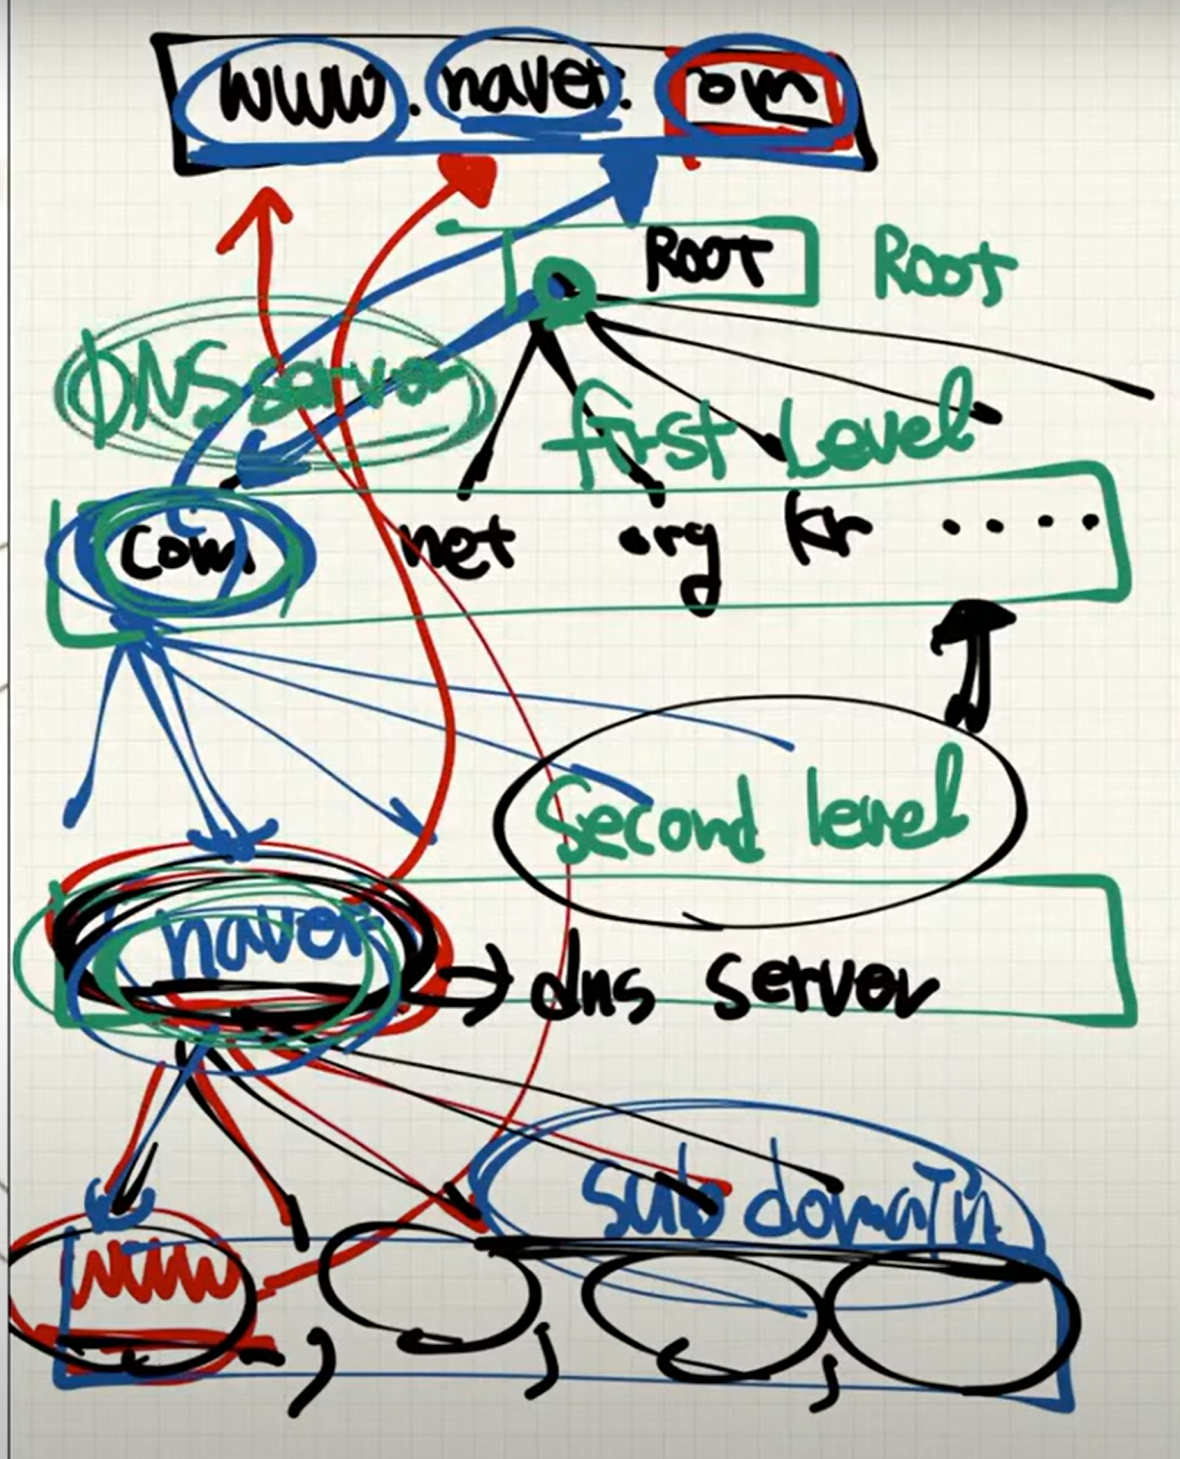 www.naver.com
ROOT Root
DNS server
first Level
com net org kr ....
Second level
naver → dns server
sub domain
www , , ,